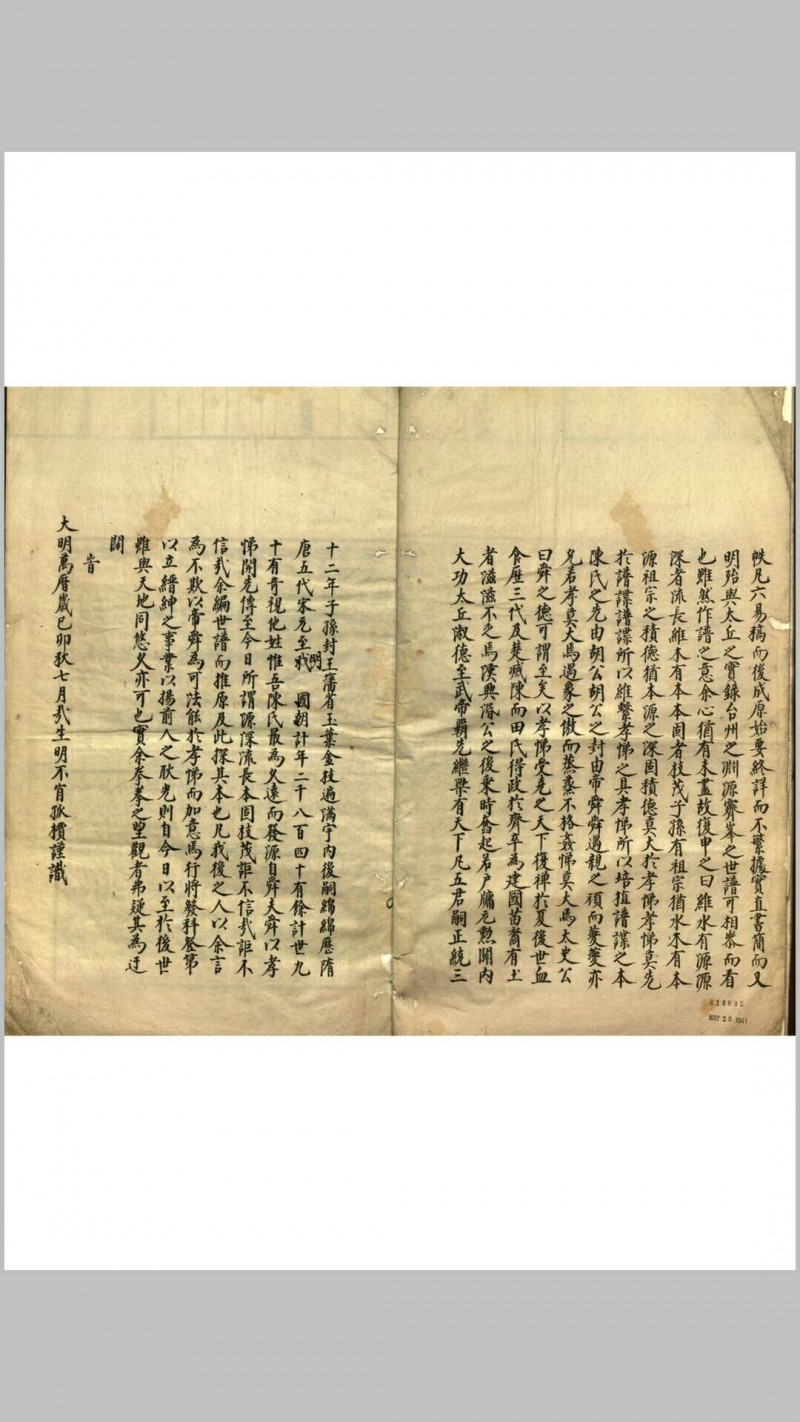 帙凡六易稿而後成原始要終詳而不繁據實直書簡而又
明殆與太丘之實錄台州之淵源霽峯之世譜可相叅而看
也雖然作譜之意余心猶有未盡故復申之曰維水有源源
深者流長維木有本本固者枝茂子孫有祖宗猶水木有本
源祖宗之積德猶本源之深固積德莫大於孝悌孝悌莫先
於譜諜譜諜所以維繫孝悌之具孝悌所以培植譜諜之本
陳氏之先由胡公胡公之封由帝舜舜遇親之頑而夔夔亦
允若孝莫大焉遇象之傲而蒸蒸不格姦悌莫大焉太史公
曰舜之德可謂至矣以孝悌受堯之天下復禪於夏後世血
食歷三代及楚滅陳而田氏得政於齊卒為建國苗裔有土
者滋滋不乏焉漢興滿公之後乘時奮起若戶牖先勲開內
大功太丘淑德至武帝霸先繼梁有天下凡五君嗣正統三
十二年子孫封王藩者玉葉金枝遍滿宇內後嗣綿綿歷隋
唐五代宋元至我明 國朝計年二千八百四十有餘計世九
十有奇視他姓惟吾陳氏最為久遠而發源自舜夫舜以孝
悌開先傳至今日所謂源深流長本固枝茂詎不信哉詎不
信哉余編世譜而推原及此探其本也凡我後之人以余言
為不欺以帝舜為可法能於孝悌而加意焉行將發科登第
以立縉紳之事業以揚前人之耿光則自今日以至於後世
雖與天地同悠久亦可也實余拳拳之望觀者弗疑其為迂
闊
旹
大明萬曆歲己卯秋七月哉生明不肖孤 謹識
816695
MAY 23 1941